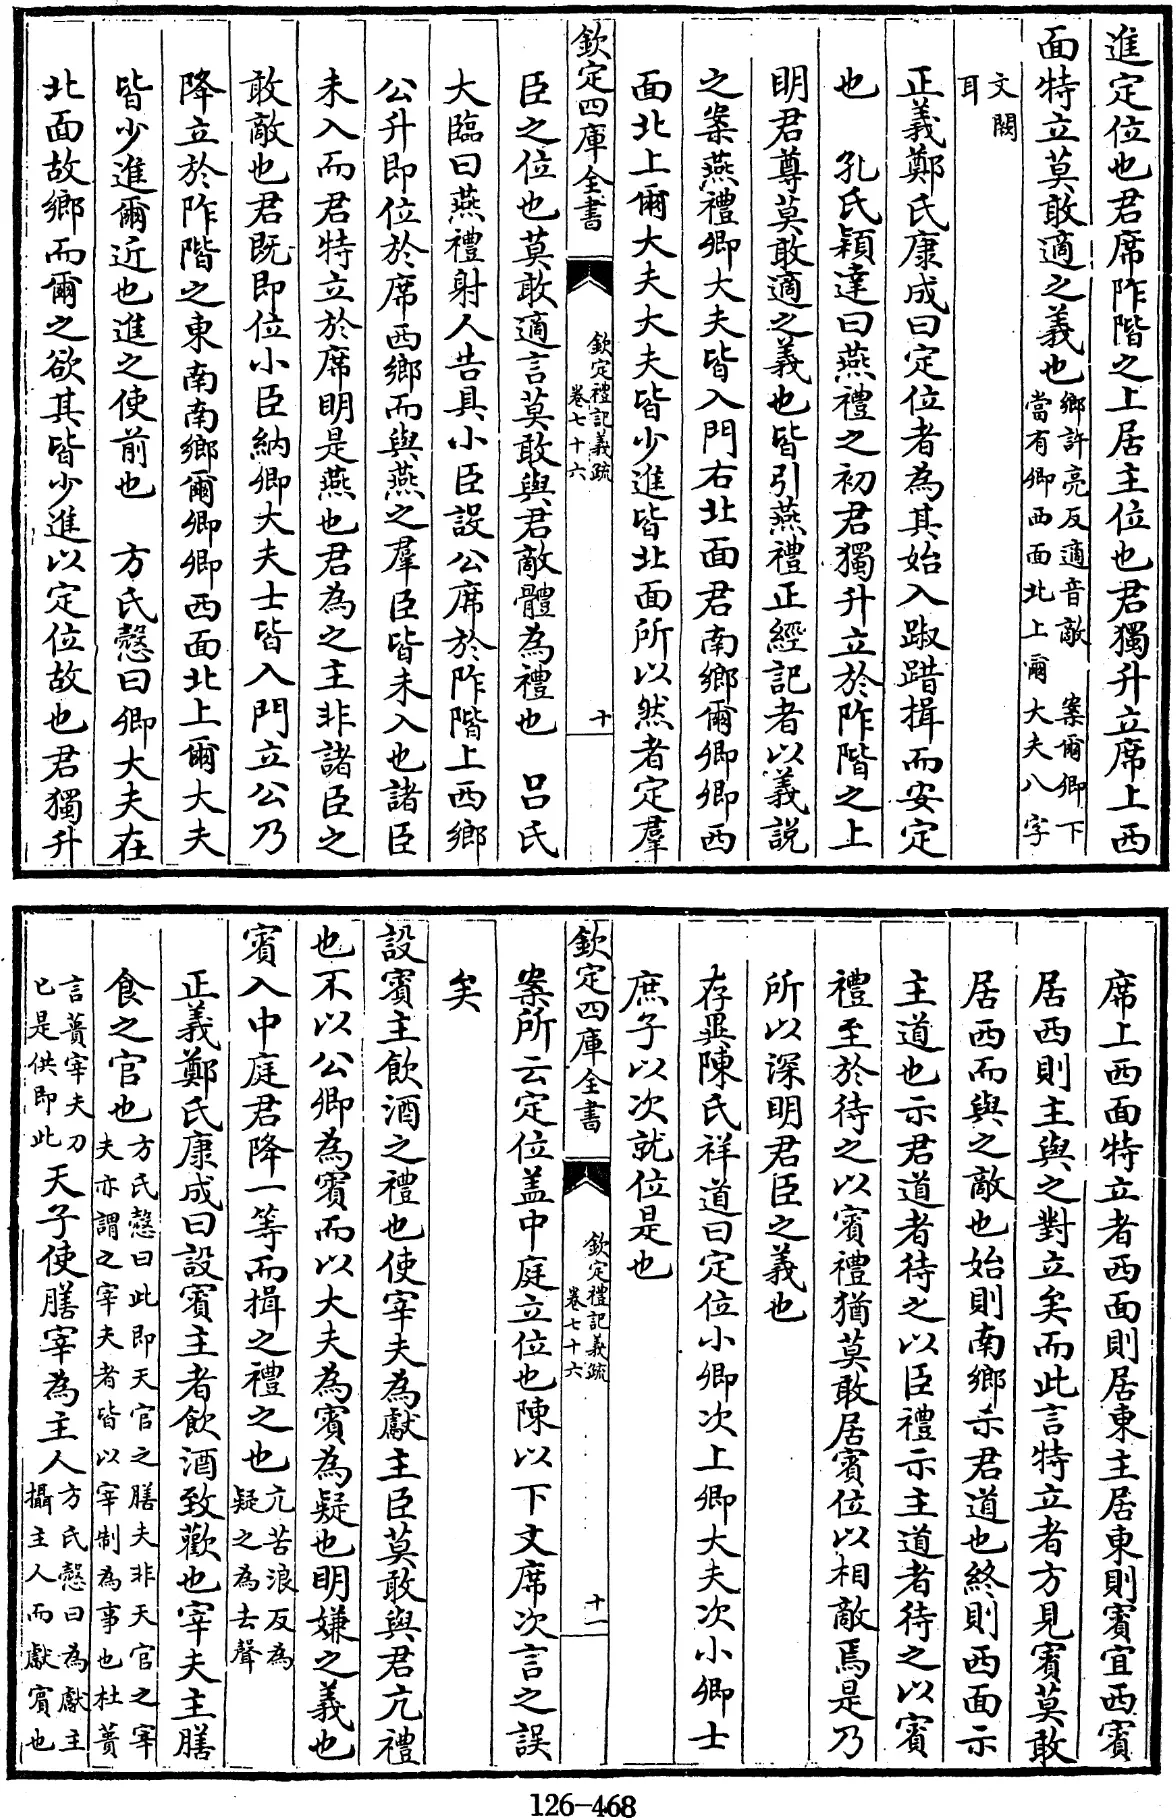 進定位也君席阼階之上居主位也君獨升立席上西
面特立莫敢適之義也
鄉許亮反適音敵　案爾卿下
當有卿西面北上爾大夫八字
文闕
耳
正義鄭氏康成曰定位者為其始入踧踖揖而安定
也　孔氏穎達曰燕禮之初君獨升立於阼階之上
明君尊莫敢適之義也皆引燕禮正經記者以義説
之案燕禮卿大夫皆入門右北面君南鄉爾卿卿西
面北上爾大夫大夫皆少進皆北面所以然者定羣
欽定四庫全書
欽定禮記義疏
卷七十六
十
臣之位也莫敢適言莫敢與君敵體為禮也　呂氏
大臨曰燕禮射人告具小臣設公席於阼階上西鄉
公升即位於席西鄉而與燕之羣臣皆未入也諸臣
未入而君特立於席明是燕也君為之主非諸臣之
敢敵也君既即位小臣納卿大夫士皆入門立公乃
降立於阼階之東南南鄉爾卿卿西面北上爾大夫
皆少進爾近也進之使前也　方氏慤曰卿大夫在
北面故鄉而爾之欲其皆少進以定位故也君獨升
席上西面特立者西面則居東主居東則賓宜西賓
居西則主與之對立矣而此言特立者方見賓莫敢
居西而與之敵也始則南鄉示君道也終則西面示
主道也示君道者待之以臣禮示主道者待之以賓
禮至於待之以賓禮猶莫敢居賓位以相敵焉是乃
所以深明君臣之義也
存異陳氏祥道曰定位小卿次上卿大夫次小卿士
庶子以次就位是也
欽定四庫全書
欽定禮記義疏
卷七十六
十一
案所云定位盖中庭立位也陳以下文席次言之誤
矣
設賓主飲酒之禮也使宰夫為獻主臣莫敢與君亢禮
也不以公卿為賓而以大夫為賓為疑也明嫌之義也
賓入中庭君降一等而揖之禮之也
亢苦浪反為
疑之為去聲
正義鄭氏康成曰設賓主者飲酒致歡也宰夫主膳
食之官也
方氏慤曰此即天官之膳夫非天官之宰
夫亦謂之宰夫者皆以宰制為事也杜蕢
言蕢宰夫刀
匕是供即此
天子使膳宰為主人
方氏慤曰為獻主
攝主人而獻賓也
126-468